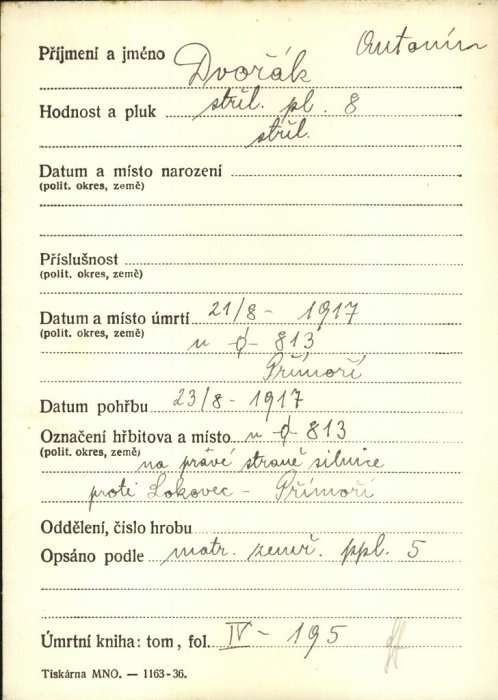 Příjmení a jméno Dvořák Antonín
Hodnost a pluk střl. pl. 8
střl.
Datum a místo narození
(polit. okres, země)
Příslušnost
(polit. okres, země)
Datum a místo úmrtí 21/8 - 1917
(polit. okres, země) u ϕ 813
Přímoří
Datum pohřbu 23/8 - 1917
Označení hřbitova a místo u ϕ 813
(polit. okres, země) na pravé straně silnice
proti Lokovec - Přímoří
Oddělení, číslo hrobu
Opsáno podle matr. zemř. ppl. 5
Úmrtní kniha: tom, fol. IV - 195
Tiskárna MNO. — 1163-36.